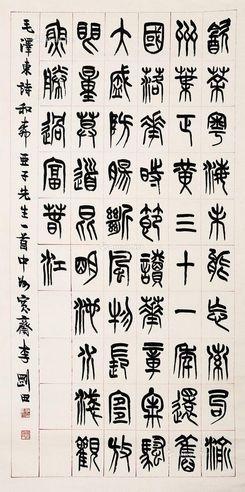 飲茶粵海未能忘索句渝
州葉正黃三十一年還舊
國落花時節讀華章牢騷
大盛防腸斷風物長宜放
眼量莫道昆明池水淺觀
魚勝過富春江
毛澤東詩和柳亞子先生一首中州寬齋李剛田